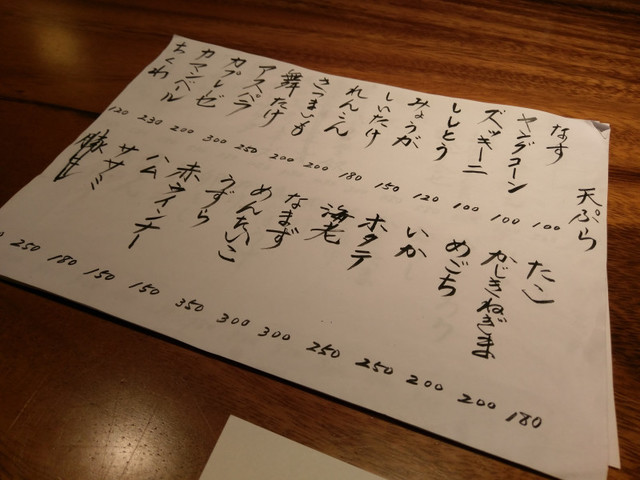 天ぷら
なす 100
ヤングコーン 100
ズッキーニ 100
ししとう 120
みょうが 150
しいたけ 180
れんこん 200
さつまいも 200
舞たけ 250
アスパラ 300
カプレゼ 200
カマンベール 230
ちくわ 120
たこ 180
かじきねぎま 200
めごち 200
いか 250
ホタテ 250
海老 300
なまず 300
めんたいこ 350
うずら 150
赤ウインナー 150
ハム 180
ササミ 250